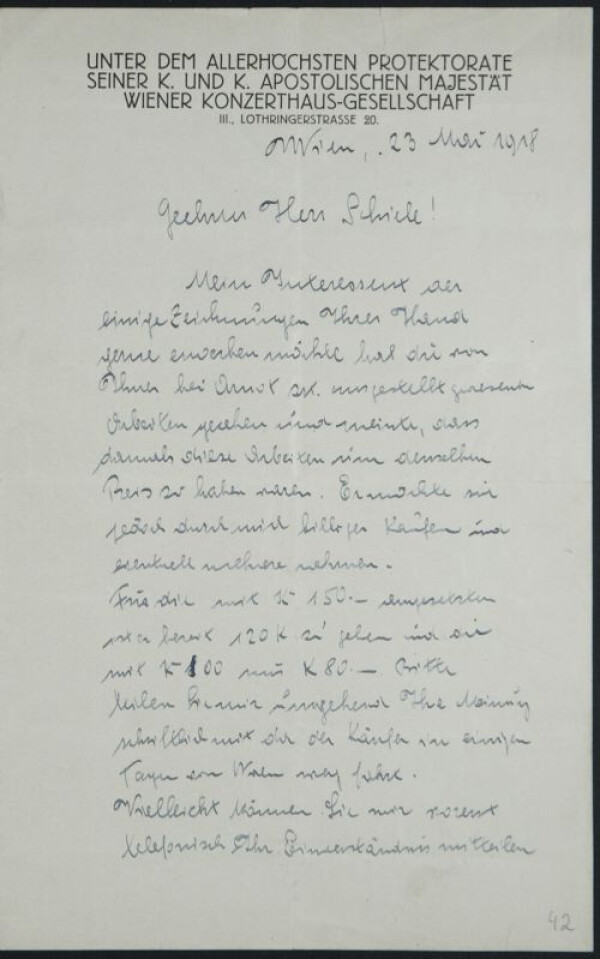 UNTER DEM ALLERHÖCHSTEN PROTEKTORATE
SEINER K. UND K. APOSTOLISCHEN MAJESTÄT
WIENER KONZERTHAUS-GESELLSCHAFT
III., LOTHRINGERSTRASSE 20.
Wien, 23 Mai 1918
Geehrter Herr Schiele!
Mein Interessent der
einige Zeichnungen Ihrer Hand
gerne erwerben möchte hat die von
Ihnen bei Arnot ausgestellt gewesenen
Arbeiten gesehen und meinte, dass
damals diese Arbeiten um denselben
Preis zu haben waren. Er möchte sie
jedoch durch mich billiger Kaufen und
eventuell mehrere nehmen.
Für die mit K 150.- angesetzten
ist er bereit 120 K zu geben und die
mit K 100 nur K 80.- Bitte
teilen Sie mir umgehend Ihre Meinung
schriftlich mit da der Käufer in einigen
Tagen von Wien weg fährt.
Vielleicht können Sie mir vorerst
telefonisch Ihr Einverständnis mitteilen
42